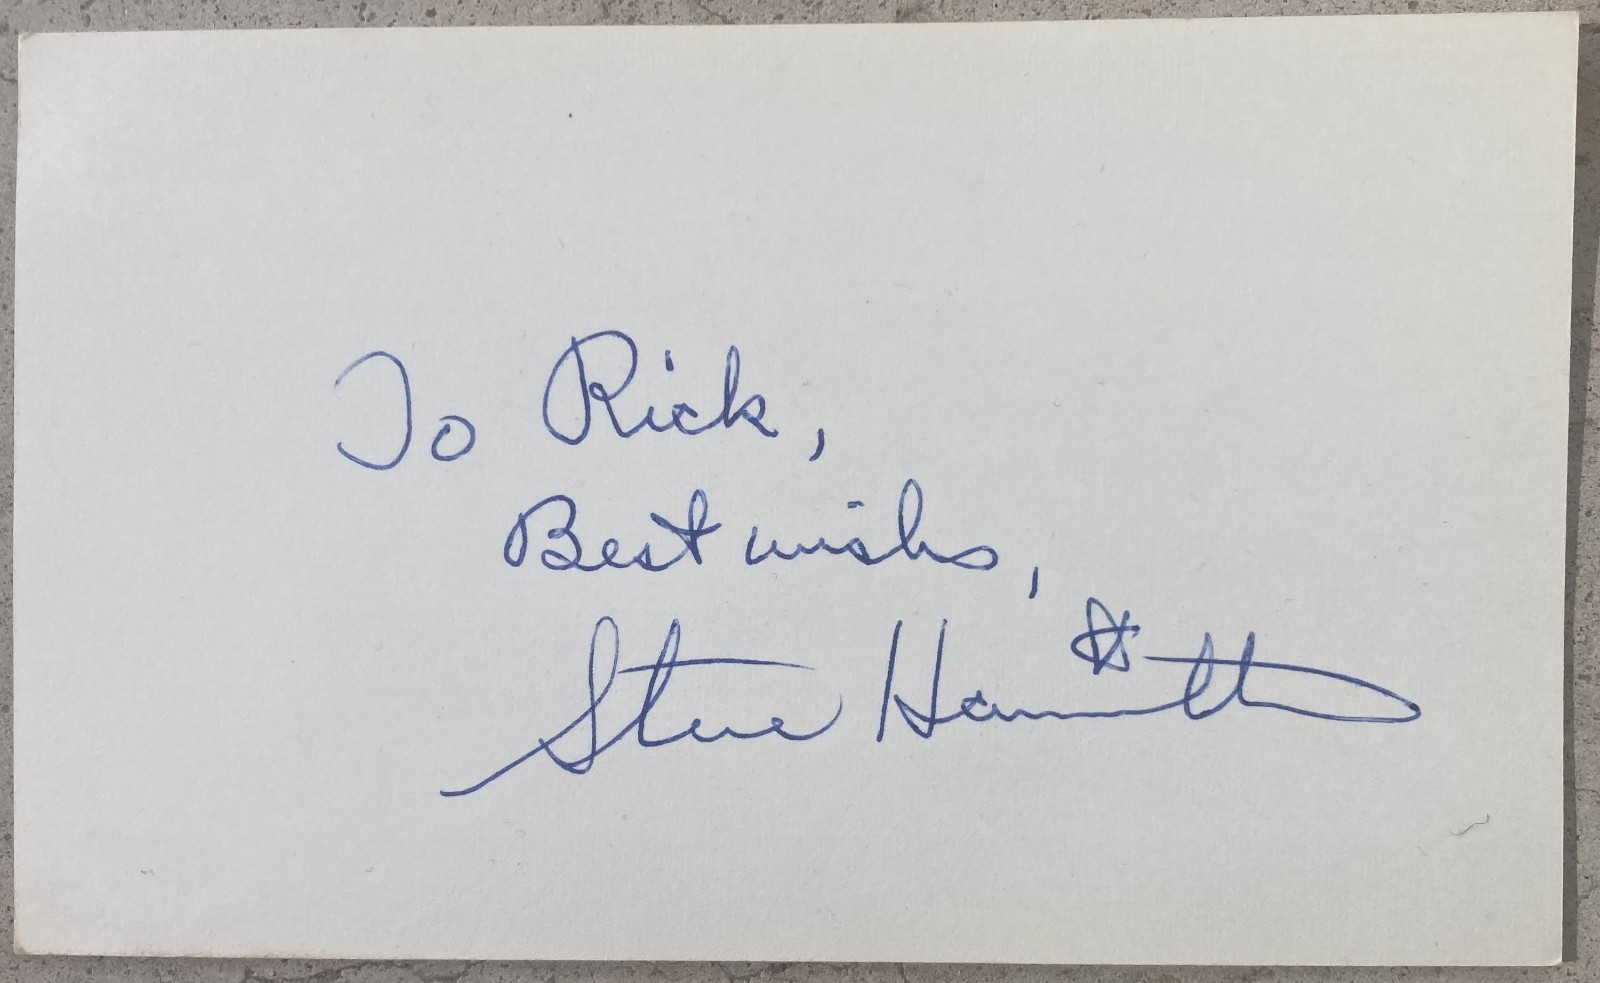 To Rick,
Best wishes,
Steve Hamilton